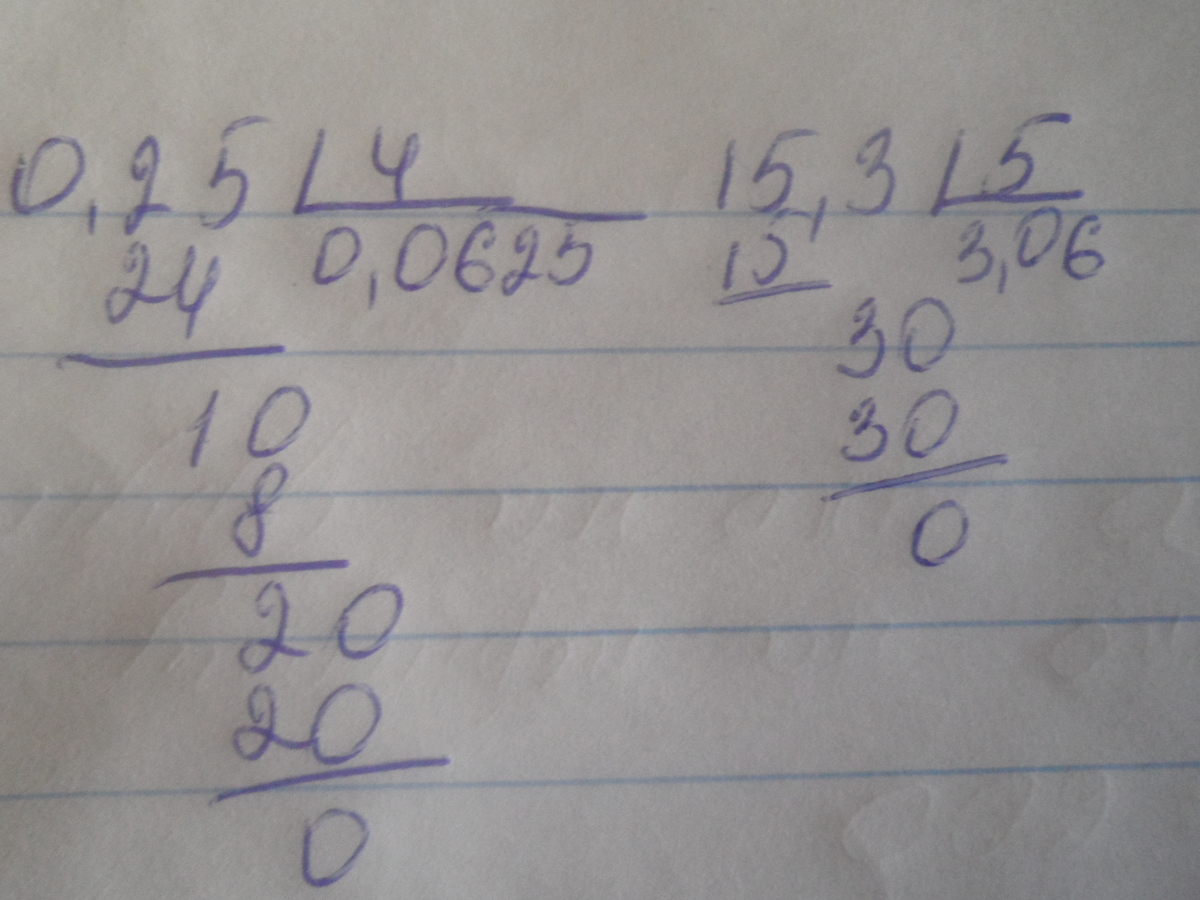 0,25 4
24 0,0625
10
8
20
20
0
15,3 5
15 3,06
30
30
0